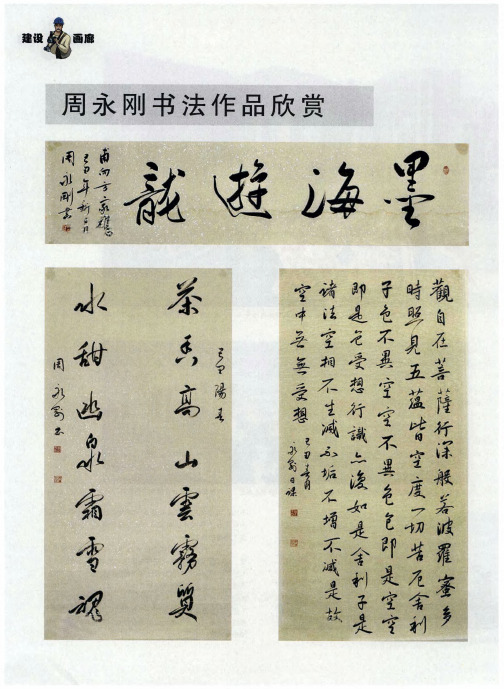 建设 画廊
周永刚书法作品欣赏
墨海遊龍
己丑年新春月
周永刚书
己丑陽春
茶香高山雲霧質
水甜幽泉霜雪魂
周永刚书
觀自在菩薩行深般若波羅蜜多
時照見五蕴皆空度一切苦厄舍利
子色不異空空不異色色即是空空
即是色受想行識亦復如是舍利子是
諸法空相不生滅不垢不增不減是故
空中無無受想
己丑春月